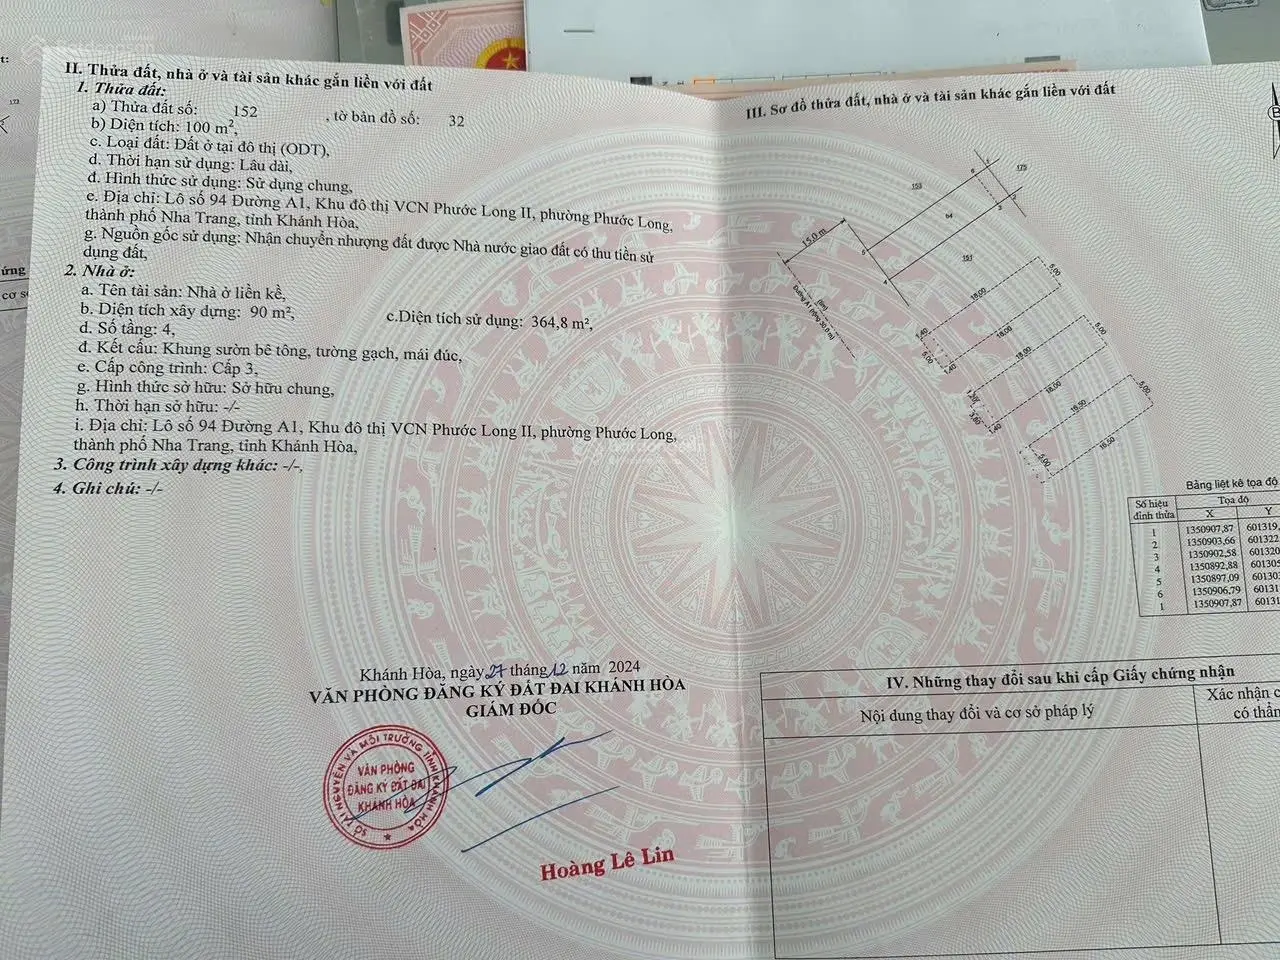 II. Thửa đất, nhà ở và tài sản khác gắn liền với đất
1. Thửa đất:
a) Thửa đất số: 152 , tờ bản đồ số: 32
b) Diện tích: 100 m²,
c. Loại đất: Đất ở tại đô thị (ODT),
d. Thời hạn sử dụng: Lâu dài,
đ. Hình thức sử dụng: Sử dụng chung,
e. Địa chỉ: Lô số 94 Đường A1, Khu đô thị VCN Phước Long II, phường Phước Long,
thành phố Nha Trang, tỉnh Khánh Hòa,
g. Nguồn gốc sử dụng: Nhận chuyển nhượng đất được Nhà nước giao đất có thu tiền sử
dụng đất,
2. Nhà ở:
a. Tên tài sản: Nhà ở liền kề,
b. Diện tích xây dựng: 90 m², c.Diện tích sử dụng: 364,8 m²,
d. Số tầng: 4,
đ. Kết cấu: Khung sườn bê tông, tường gạch, mái đúc,
e. Cấp công trình: Cấp 3,
g. Hình thức sở hữu: Sở hữu chung,
h. Thời hạn sở hữu: -/-
i. Địa chỉ: Lô số 94 Đường A1, Khu đô thị VCN Phước Long II, phường Phước Long,
thành phố Nha Trang, tỉnh Khánh Hòa,
3. Công trình xây dựng khác: -/-,
4. Ghi chú: -/-
Khánh Hòa, ngày 27 tháng 12 năm 2024
VĂN PHÒNG ĐĂNG KÝ ĐẤT ĐAI KHÁNH HÒA
GIÁM ĐỐC
SỞ TÀI NGUYÊN VÀ MÔI TRƯỜNG TỈNH KHÁNH HÒA
VĂN PHÒNG
ĐĂNG KÝ ĐẤT ĐAI
KHÁNH HÒA
Hoàng Lê Lin
III. Sơ đồ thửa đất, nhà ở và tài sản khác gắn liền với đất
153
175
1
6
3
64
151
15,0 m
5
4
Đường A1 (rộng 30,0 m)
5,00
18,00
1,40
18,00
5,00
5,00
18,00
18,00
1,20
3,60
1,40
5,00
16,50
16,50
5,00
Bảng liệt kê tọa độ
Số hiệu đỉnh thửa
Tọa độ
X Y
1 1350907,87 601319,
2 1350903,66 601322
3 1350902,58 601320
4 1350892,88 601305
5 1350897,09 60130
6 1350906,79 60131
1 1350907,87 60131
IV. Những thay đổi sau khi cấp Giấy chứng nhận
Nội dung thay đổi và cơ sở pháp lý
Xác nhận c
có thẩn
B
172
ứng
cơ s